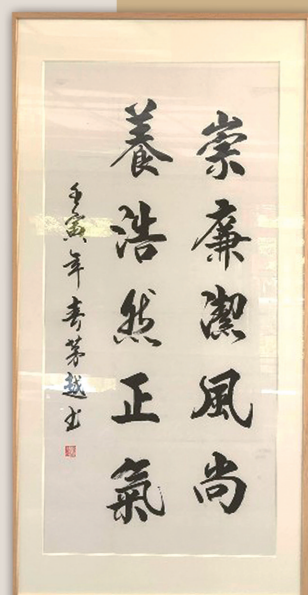 崇廉潔風尚
養浩然正氣
壬寅年春茅越书